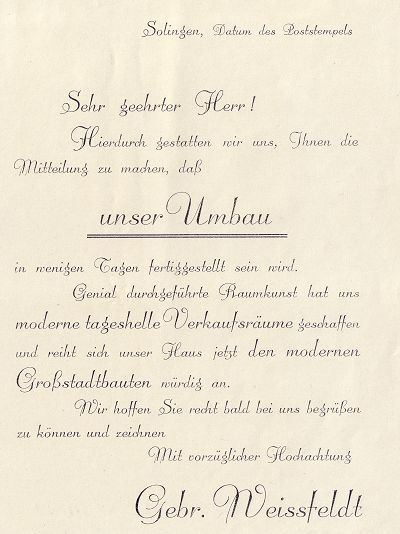 Solingen, Datum des Poststempels
Sehr geehrter Herr!
Hierdurch gestatten wir uns, Ihnen die
Mitteilung zu machen, daß
unser Umbau
in wenigen Tagen fertiggestellt sein wird.
Genial durchgeführte Raumkunst hat uns
moderne tageshelle Verkaufsräume geschaffen
und reiht sich unser Haus jetzt den modernen
Großstadtbauten würdig an.
Wir hoffen Sie recht bald bei uns begrüßen
zu können und zeichnen
Mit vorzüglicher Hochachtung
Gebr. Weissfeldt